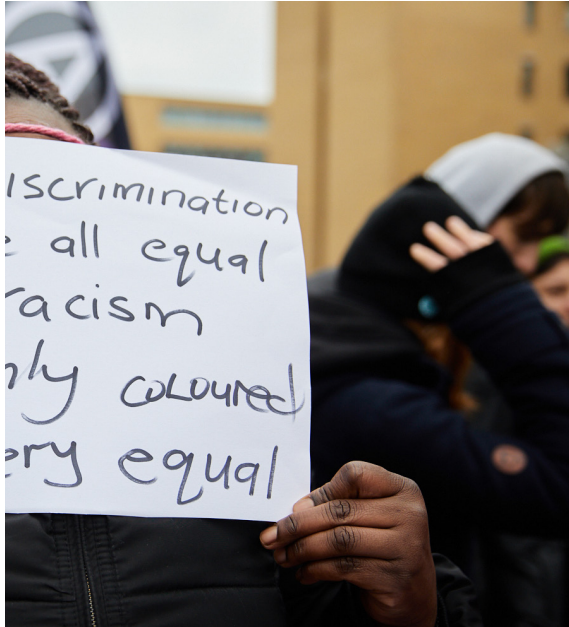 iscrimination
e all equal
racism
nly coloured
ery equal